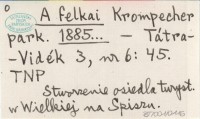 A Felkai Krompecher
park. 1885... — Tátra-
-Vidék 3, nr 6: 45.
TNP
Stworzenie osiedla turyst.
w Wielkiej na Spiszu.